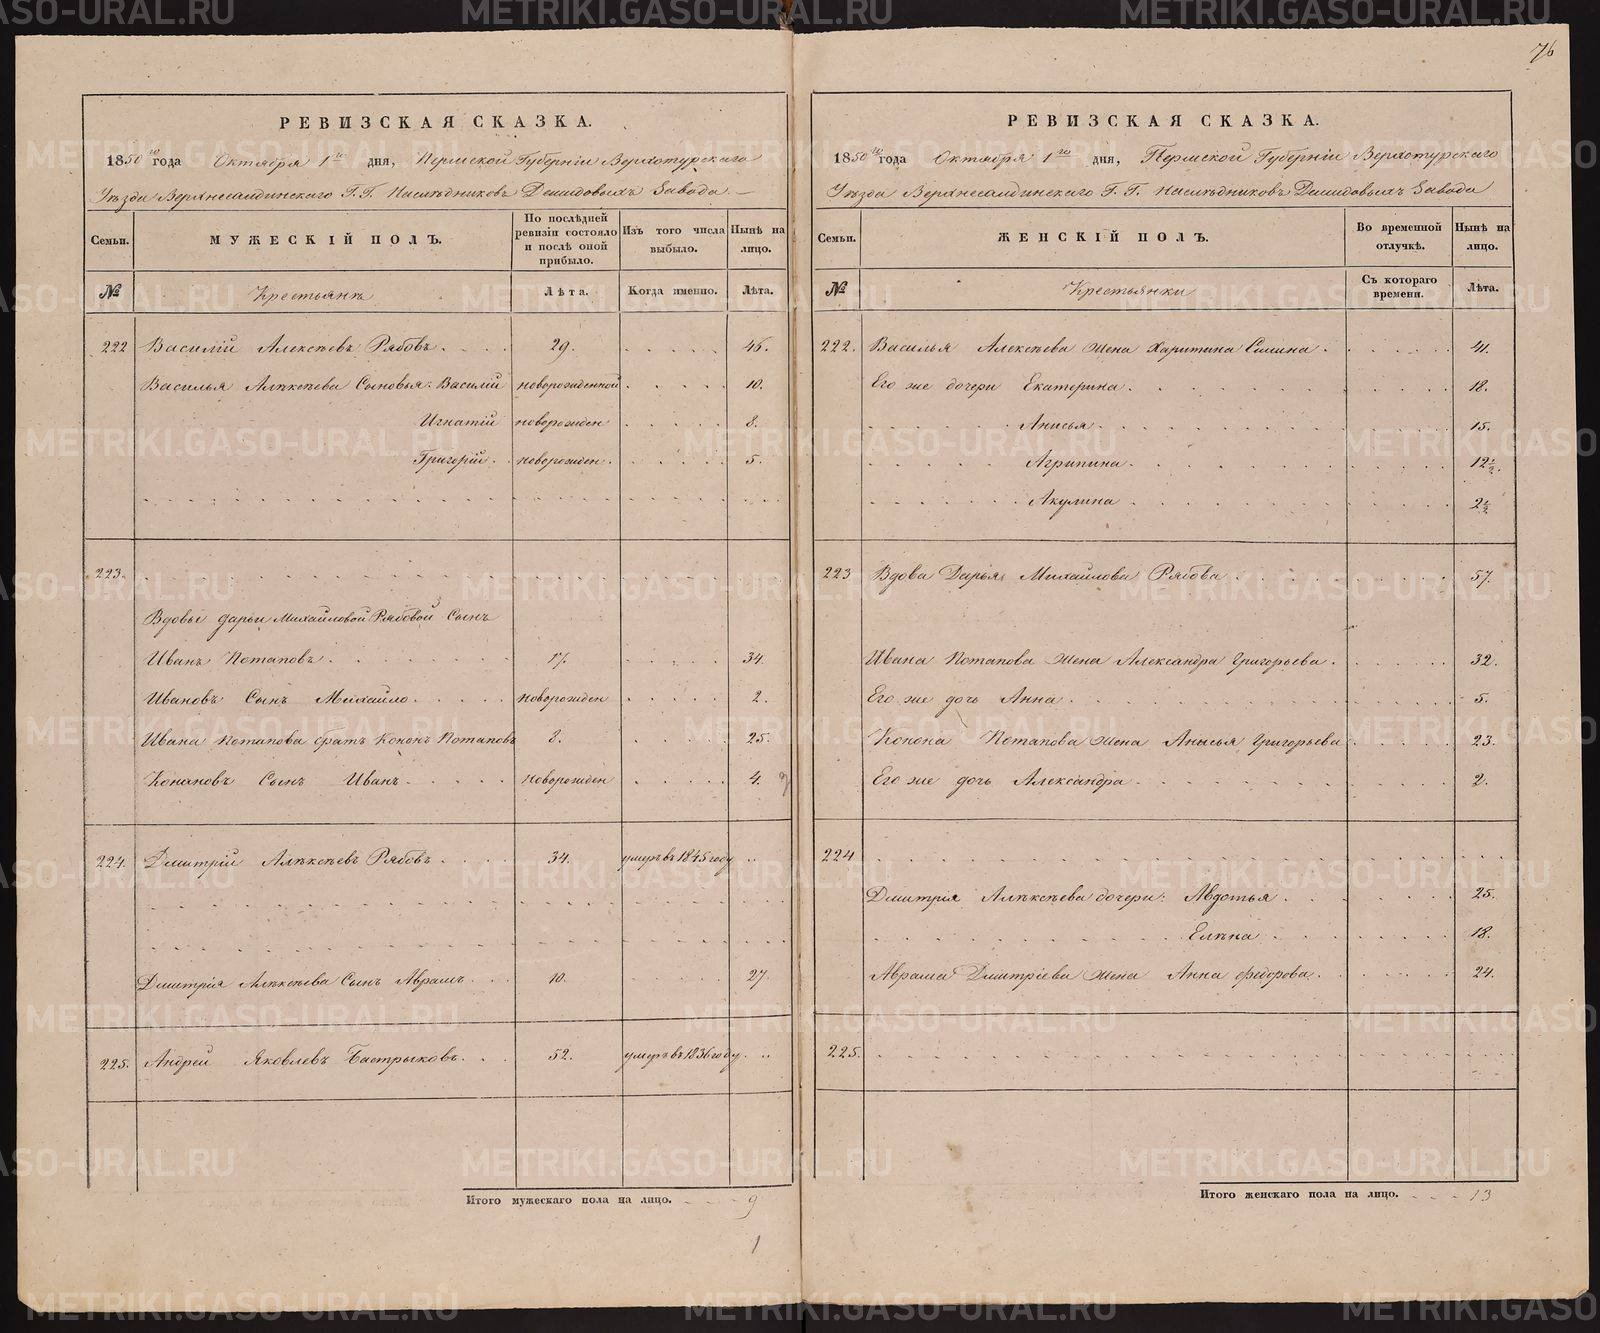 76
РЕВИЗСКАЯ СКАЗКА.
1850го года Октября 1го дня, Пермской Губерніи Верхотурскаго
Уѣзда Верхнесалдинскаго Г.Г. Наслѣдниковъ Демидовыхъ Завода
Семьи.
МУЖЕСКІЙ ПОЛЪ.
По послѣдней ревизіи состояло и послѣ оной прибыло.
Изъ того числа выбыло.
Нынѣ на лицо.
№
Крестьянъ
Лѣта.
Когда именно.
Лѣта.
222 Василій Алексѣевъ Рябовъ 29. 46.
Василья Алѣксѣева Сыновья: Василій новорожденной 10.
Игнатій новорожден 8.
Григорій новорожден. 5.
223.
Вдовы Дарьи Михайловой Рябовой Сынъ
Иванъ Потаповъ 17. 34.
Ивановъ Сынъ Михайло новорожден 2.
Ивана Потапова братъ Кононъ Потаповъ 8. 25.
Конановъ Сынъ Иванъ новорожден 4.
224. Дмитрій Алѣксѣевъ Рябовъ 34. умеръ въ 1845 году
Дмитрія Алѣксѣева Сынъ Аврамъ 10. 27.
225. Андрей Яковлевъ Бастрыковъ 52. умеръ въ 1836 году
Итого мужескаго пола на лицо. 9
1
РЕВИЗСКАЯ СКАЗКА.
1850го года Октября 1го дня, Пермской Губерніи Верхотурскаго
Уѣзда Верхнесалдинскаго Г.Г. Наслѣдниковъ Демидовыхъ Завода
Семьи.
ЖЕНСКІЙ ПОЛЪ.
Во временной отлучкѣ.
Нынѣ на лицо.
№
Крестьянки
Съ котораго времени.
Лѣта.
222. Василья Алексѣева жена Харитина Симина 41.
Его же дочери Екатерина 18.
Анисья 15.
Агрипина 12½.
Акулина 2½
223 Вдова Дарья Михайлова Рябова 57.
Ивана Потапова жена Александра Григорьева 32.
Его же дочь Анна 5.
Конона Потапова жена Анисья Григорьева 23.
Его же дочь Александра 2.
224
Дмитрія Алѣксѣева дочери: Авдотья 25.
Елѣна 18.
Аврама Дмитріева жена Анна Федорова 24.
225.
Итого женскаго пола на лицо. 13
METRIKI.GASO-URAL.RU